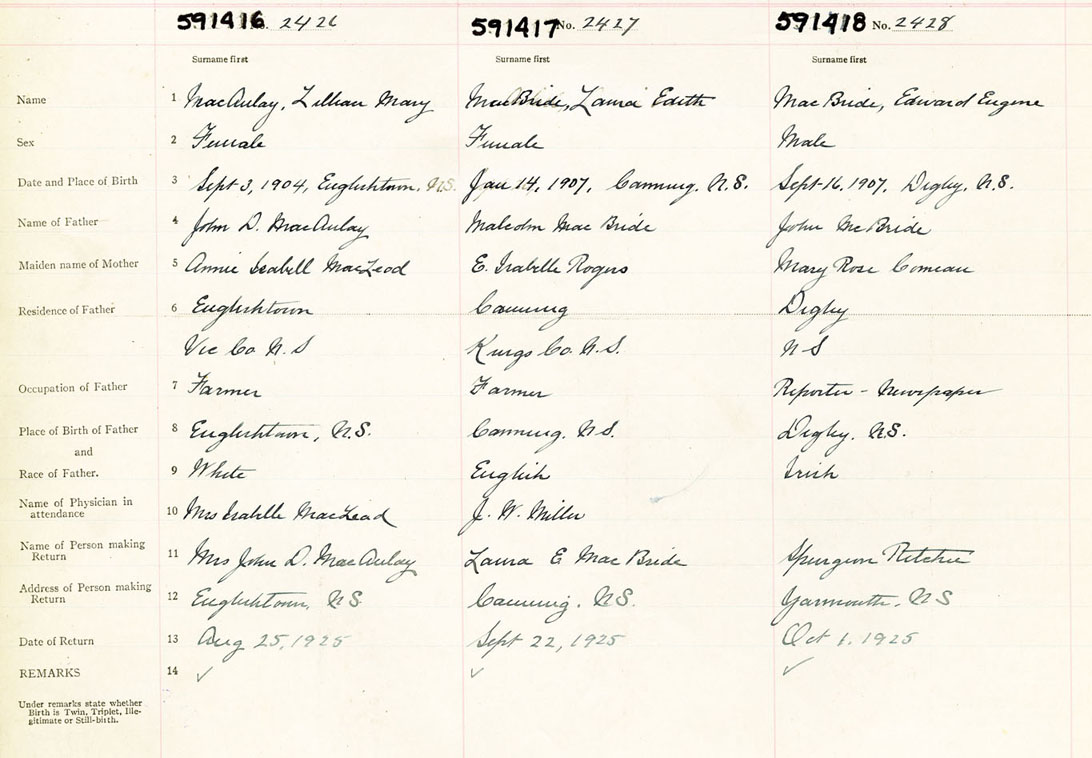 591416 No. 2426 591417 No. 2427 591418 No. 2428
Surname first Surname first Surname first
Name 1 MacAulay, Lillian Mary MacBride, Laura Edith MacBride, Edward Eugene
Sex 2 Female Female Male
Date and Place of Birth 3 Sept 3, 1904, Englishtown, N.S. Jan 14, 1907, Canning, N.S. Sept-16, 1907, Digby, N.S.
Name of Father 4 John D. MacAulay Malcolm Mac Bride John McBride
Maiden name of Mother 5 Annie Isabell MacLeod E. Isabelle Rogers Mary Rose Comeau
Residence of Father 6 Englishtown Canning Digby
Vic Co N.S Kings Co. N.S. N-S
Occupation of Father 7 Farmer Farmer Reporter - Newspaper
Place of Birth of Father 8 Englishtown, N.S. Canning. N.S. Digby. N.S.
and
Race of Father. 9 White English Irish
Name of Physician in
attendance 10 Mrs Isabelle MacLeod J. W. Miller
Name of Person making
Return 11 Mrs John D. MacAulay Laura E MacBride Spurgeon Ritchie
Address of Person making
Return 12 Englishtown, N.S. Canning. N.S. Yarmouth. N.S
Date of Return 13 Aug 25, 1925 Sept 22, 1925 Oct 1. 1925
REMARKS 14 ✓ ✓ ✓
Under remarks state whether
Birth is Twin, Triplet, Ille-
gitimate or Still-birth.